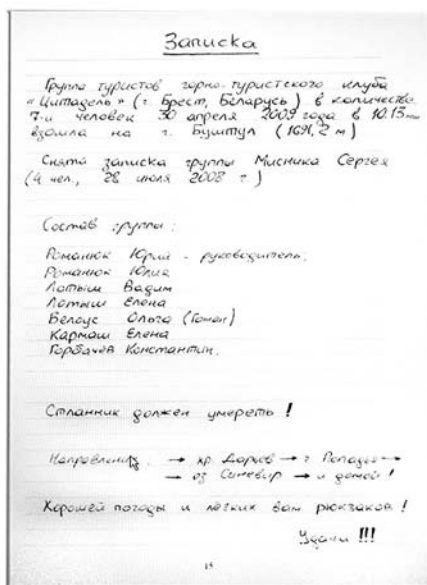 Записка
Группа туристов горно-туристского клуба
"Цитадель" (г. Брест, Беларусь) в количестве
7-и человек 30 апреля 2009 года в 10.15
взошла на г. Буштул (1691,2 м)
Снята записка группы Мисника Сергея
(4 чел., 28 июля 2008 г.)
Состав группы:
Романюк Юрий - руководитель.
Романюк Юлия
Лотыш Вадим
Лотыш Елена
Белоус Ольга (Гоман)
Кармаш Елена
Горбачёв Константин.
Стланник должен умереть!
→ хр. Дарвов → г. Попадья →
→ оз Синевир → и домой!
Хорошей погоды и лёгких вам рюкзаков!
Удачи!!!